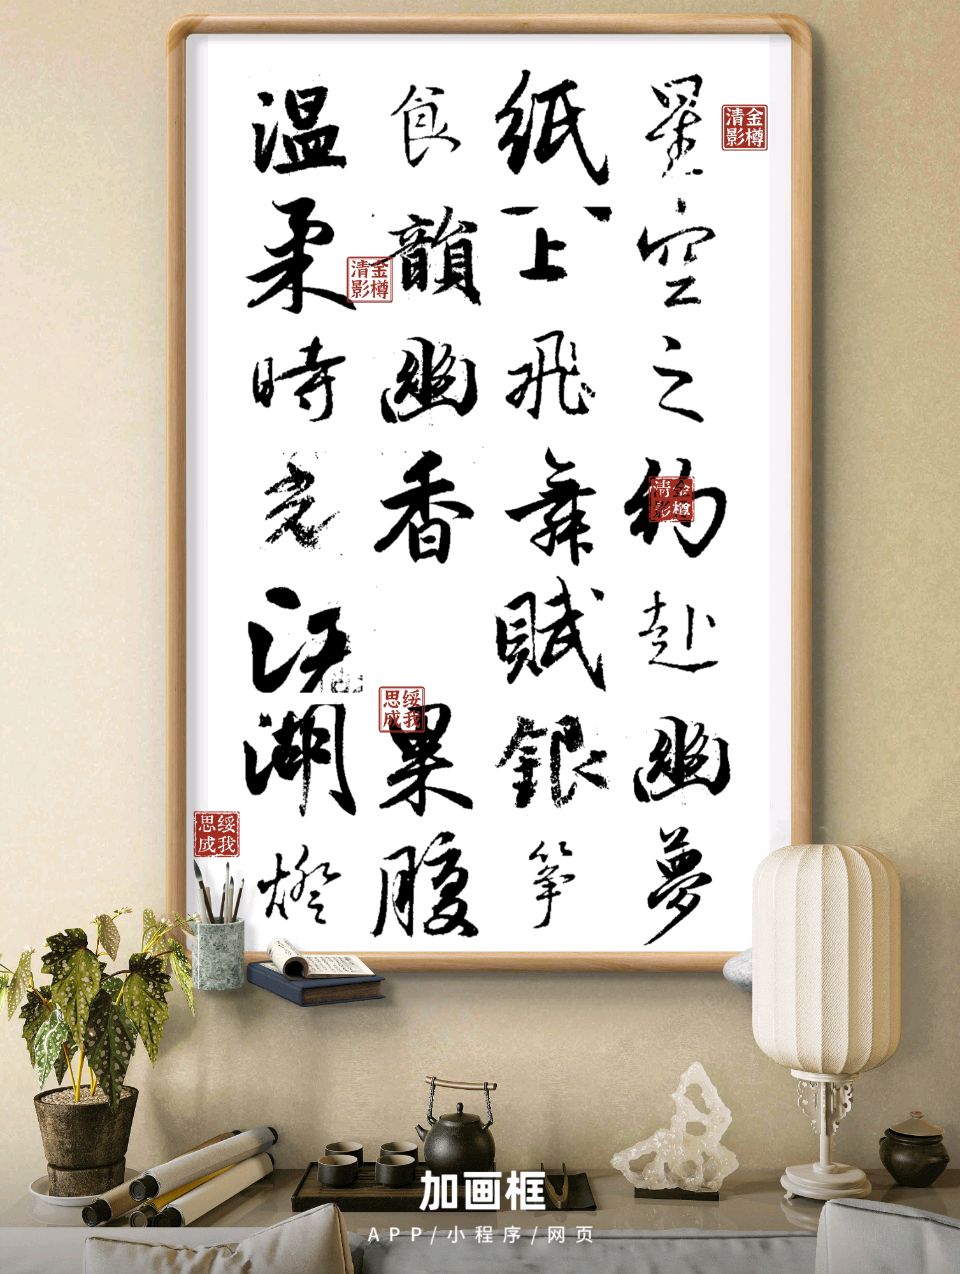 星空之約赴幽夢
紙上飛舞賦銀箏
食韻幽香 果腹
温柔時光江湖燈
金樽清影
金樽清影
金樽清影
綏我思成
綏我思成
加画框
APP/小程序/网页